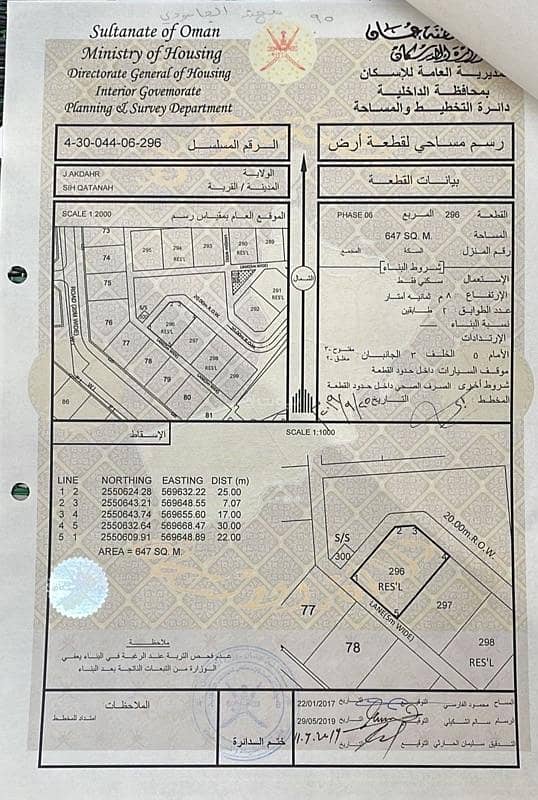 Sultanate of Oman
Ministry of Housing
Directorate General of Housing
Interior Govemorate
Planning & Survey Department
المديرية العامة للإسكان
بمحافظة الداخلية
دائرة التخطيط والمساحة
4-30-044-06-296 الرقم المسلسل
رسم مساحي لقطعة أرض
J.AKDAHR الولاية
SIH QATANAH المدينة / القرية
بيانات القطعة
SCALE 1:2000 الموقع العام بمقياس رسم
القطعة 296 المربع PHASE 06
المساحة 647 SQ. M.
رقم المنزل السكة المجمع
شروط البناء
الإستعمال سكني فقط
الإرتفاع ٨ م ثمانيه امتار
عدد الطوابق ٢ طابقين
نسبة البناء
الإرتدادات
الأمام ٥ الخلف ٣ الجانبان مفتوح ٣٠ مغلق ٢٠
موقف السيارات داخل حدود القطعة
شروط أخرى الصرف الصحي داخل حدود القطعة
المخطط التاريخ
73
74
75
76
77
78
79
80
81
86
295
294
RES'L
293
290
RES'L
289
291
RES'L
292
20.00m R.O.W.
ROAD (20M WIDE)
S/S
300
296
RES'L
297
298
RES'L
299
الشمال
الإسقاط
SCALE 1:1000
LINE NORTHING EASTING DIST (m)
1 2 2550624.28 569632.22 25.00
2 3 2550643.21 569648.55 7.07
3 4 2550643.74 569655.60 17.00
4 5 2550632.64 569668.47 30.00
5 1 2550609.91 569648.89 22.00
AREA = 647 SQ. M.
20.00m R.O.W.
S/S
300
1
2
3
4
5
296
RES'L
297
298
RES'L
77
78
LANE(5m WIDE)
ملاحظة
عدم فحص التربة عند الرغبة في البناء يعفي
الوزارة من التبعات الناتجة بعد البناء
الملاحظات
امتداد للمخطط
ختم الدائرة
المساح محمود الفارسي التوقيع التاريخ 22/01/2017
الرسام سالم الشكيلي التوقيع التاريخ 29/05/2019
التدقيق سليمان الحارثي التوقيع التاريخ